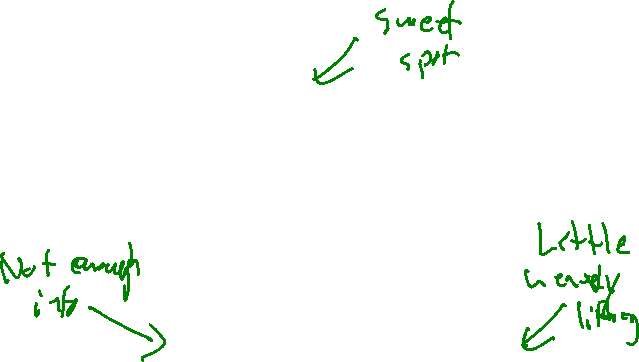 sweet
spot
Not enough
info
Little
heavy
lifting